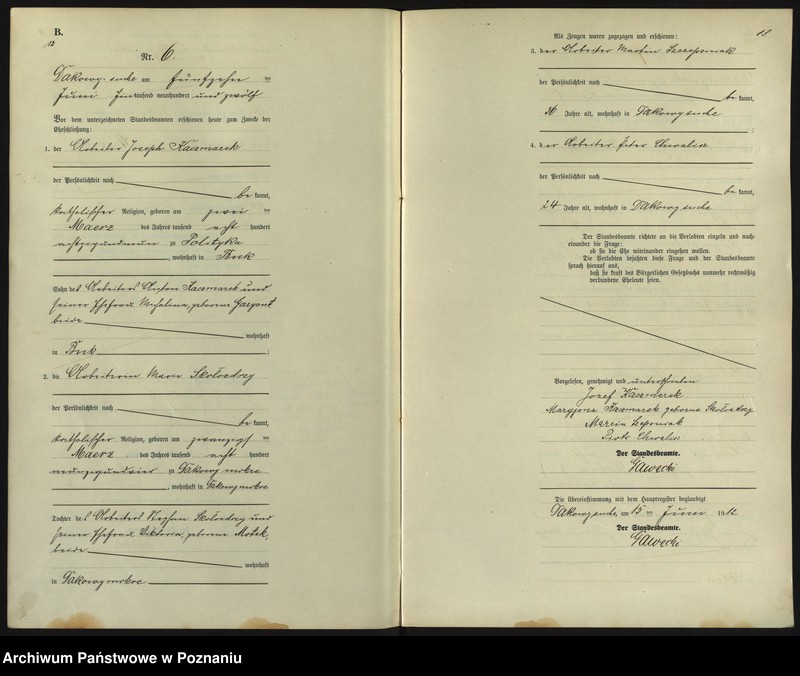 B.
12
Nr. 6.
Dakowy suche am fünfzehn ten
Juni Eintausend neunhundert und zwölf
Vor dem unterzeichneten Standesbeamten erschienen heute zum Zwecke der
Eheschließung:
1. der Arbeiter Joseph Kaczmarek
der Persönlichkeit nach
be kannt,
katholischer Religion, geboren am zwei ten
Maerz des Jahres tausend acht hundert
achtzigundneun zu
, wohnhaft in Buk
Sohn des Arbeiters Anton Kaczmarek und
seiner Ehefrau Michalina, geborene
beide
wohnhaft
in Buk ;
2. die Arbeiterin Marie Skołozdrzy
der Persönlichkeit nach
be kannt,
katholischer Religion, geboren am zwanzigs ten
Maerz des Jahres tausend acht hundert
neunzigundvier zu Dakowy mokre
, wohnhaft in Dakowy mokre
Tochter des Arbeiters Stephan Skołozdrzy und
seiner Ehefrau Viktoria, geborene Motek,
beide
wohnhaft
in Dakowy mokre
13
Als Zeugen waren zugezogen und erschienen:
3. der Arbeiter Martin
der Persönlichkeit nach
be kannt,
Jahre alt, wohnhaft in Dakowy suche
;
4. der Arbeiter Peter Chwalisz
der Persönlichkeit nach
be kannt,
24 Jahre alt, wohnhaft in Dakowy suche
Der Standesbeamte richtete an die Verlobten einzeln und nach-
einander die Frage:
ob sie die Ehe miteinander eingehen wollen.
Die Verlobten bejahten diese Frage und der Standesbeamte
sprach hierauf aus,
daß sie kraft des Bürgerlichen Gesetzbuchs nunmehr rechtmäßig
verbundene Eheleute seien.
Vorgelesen, genehmigt und unterschrieben
Józef Kaczmarek
Maryjanna Kaczmarek geborene Skołozdrzy
Marcin
Piotr Chwalisz
Der Standesbeamte.
Gawecki
Die Übereinstimmung mit dem Hauptregister beglaubigt
Dakowy suche, am 15 ten Juni 1912
Der Standesbeamte.
Gawecki
Archiwum Państwowe w Poznaniu